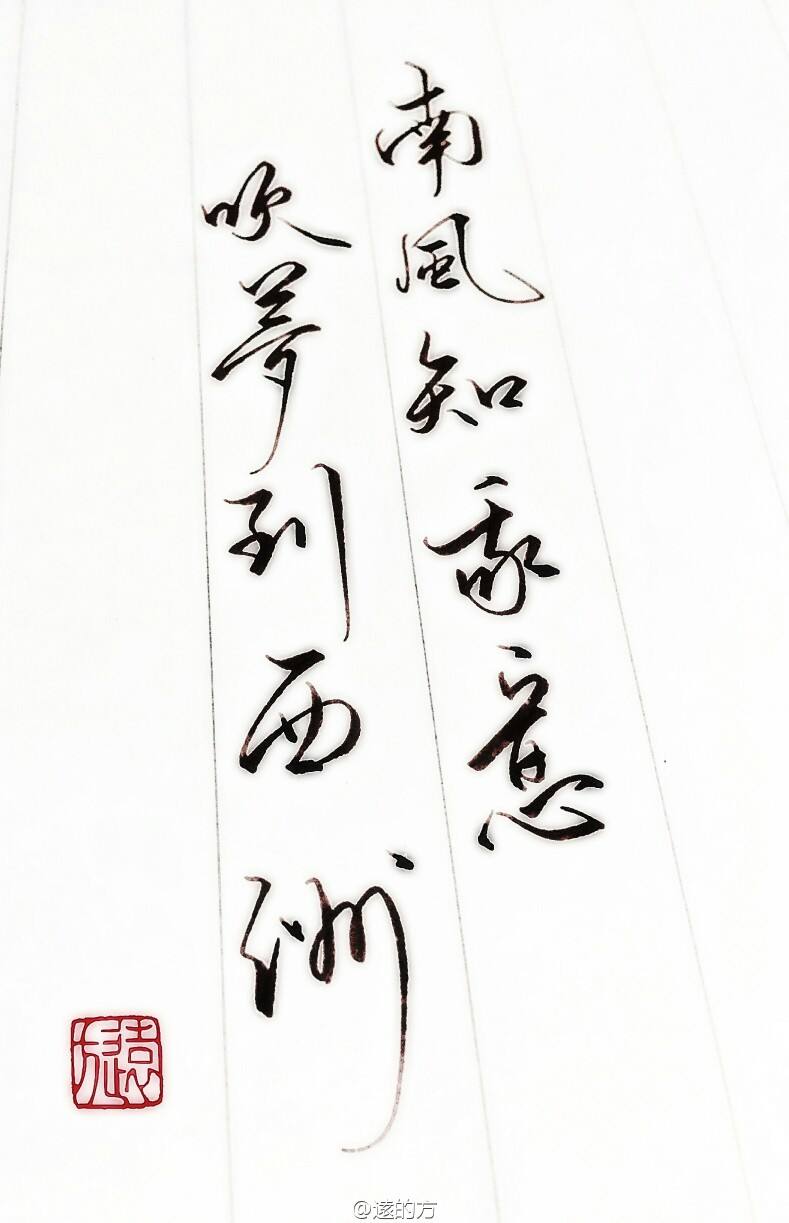 南風知我意
吹夢到西洲
@遠的方